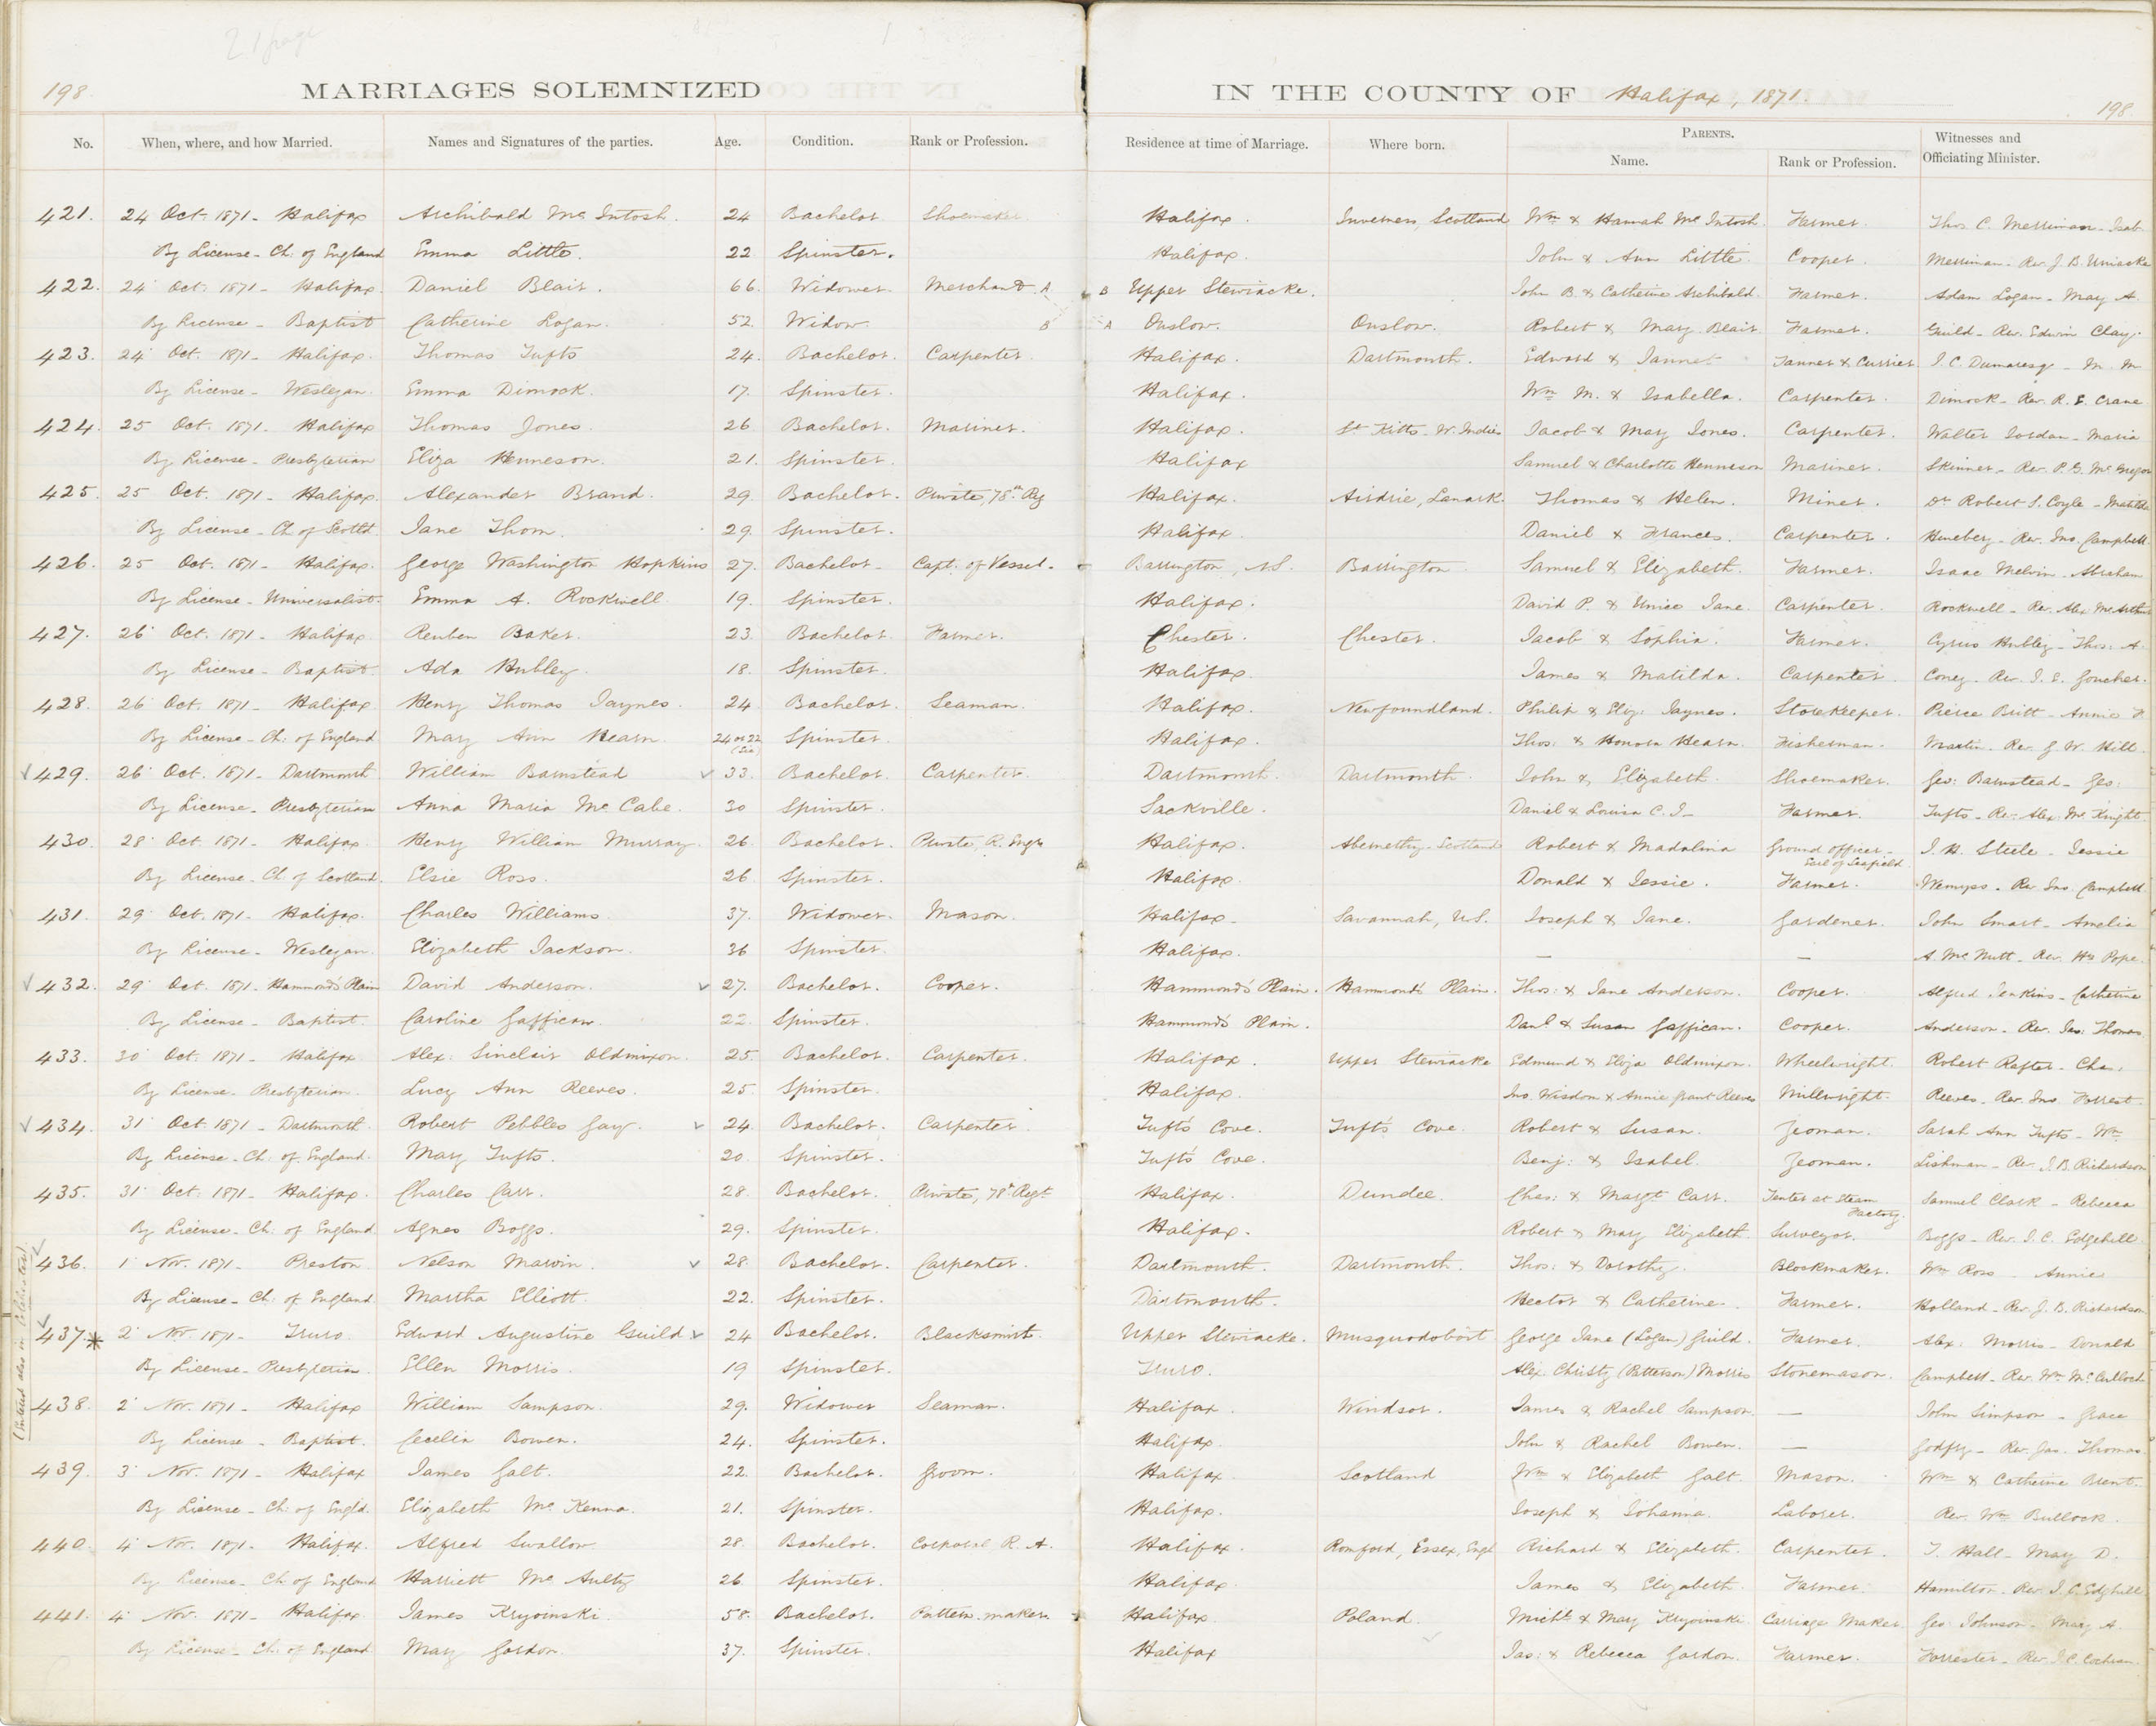 21 page
198 MARRIAGES SOLEMNIZED IN THE COUNTY OF Halifax, 1871. 198
No. When, where, and how Married. Names and Signatures of the parties. Age. Condition. Rank or Profession. Residence at time of Marriage. Where born. PARENTS. Name. Rank or Profession. Witnesses and Officiating Minister.
421. 24 Oct. 1871 - Halifax Archibald McIntosh. 24 Bachelor Shoemaker. Halifax. Inverness, Scotland Wm & Hannah McIntosh. Farmer. Thos C. Merriman - Isab.
By License - Ch. of England Emma Little. 22 Spinster. Halifax. John & Ann Little. Cooper. Merriman. Rev. J. B. Uniacke
422. 24 Oct. 1871 - Halifax. Daniel Blair. 66. Widower. Merchant. A B Upper Stewiacke. John B. & Catherine Archibald. Farmer. Adam Logan - May A.
By License - Baptist Catherine Logan. 52. Widow. B A Onslow. Onslow. Robert & Mary Blair. Farmer. Guild - Rev. Edwin Clay.
423. 24 Oct. 1871 - Halifax. Thomas Tufts 24. Bachelor. Carpenter. Halifax. Dartmouth. Edward & Jannet Tanner & Currier J. C. Dumaresq - M. M
By License - Wesleyan. Emma Dimock. 17. Spinster. Halifax. Wm M. & Isabella. Carpenter. Dimock - Rev. R. E. Crane
424. 25 Oct. 1871 - Halifax Thomas Jones. 26 Bachelor. Mariner. Halifax. St Kitts - W. Indies Jacob & Mary Jones. Carpenter. Walter Jordan - Maria
By License - Presbyterian Eliza Henneson. 21. Spinster. Halifax Samuel & Charlotte Henneson Mariner. Skinner - Rev. P. G. McGregor
425. 25 Oct. 1871 - Halifax. Alexander Brand. 29. Bachelor. Private, 78th Rg Halifax. Airdrie, Lanark. Thomas & Helen. Miner. Dr Robert S. Coyle - Matilda
By License - Ch. of Scotld. Jane Thom. 29. Spinster. Halifax. Daniel & Frances. Carpenter. Heneberg - Rev. Jno. Campbell
426. 25 Oct. 1871 - Halifax. George Washington Hopkins 27. Bachelor. Capt. of Vessel. Barrington, N.S. Barrington Samuel & Elizabeth. Farmer. Isaac Melvin - Abraham
By License - Universalist. Emma A. Rockwell 19. Spinster. Halifax. David P. & Unice Jane. Carpenter. Rockwell - Rev. Alex McArthur
427. 26 Oct. 1871 - Halifax. Reuben Baker. 23. Bachelor. Farmer. Chester. Chester. Jacob & Sophia. Farmer. Cyrus Hubley - Thos. A.
By License - Baptist Ada Hubley. 18. Spinster. Halifax. James & Matilda. Carpenter. Coney. Rev. I. E. Goucher.
428. 26 Oct. 1871 - Halifax Henry Thomas Jaynes. 24 Bachelor. Seaman. Halifax. Newfoundland. Philip & Eliz: Jaynes. Storekeeper. Pierce Britt - Annie
By License - Ch: of England Mary Ann Hearn. 24 or 22 (Sic) Spinster. Halifax. Thos: & Honora Hearn. Fisherman. Martin. Rev. G. W. Hill.
429. 26 Oct. 1871 - Dartmouth William Barnstead 33. Bachelor. Carpenter. Dartmouth. Dartmouth. John & Elizabeth. Shoemaker. Geo: Barnstead - Geo:
By License - Presbyterian Anna Maria McCabe. 30 Spinster. Sackville. Daniel & Louisa C. I - Farmer. Tufts - Rev. Alex McKnight.
430. 28 Oct. 1871 - Halifax. Henry William Murray. 26. Bachelor. Private, R. Engrs Halifax. Abernethy - Scotland Robert & Madalina Ground officer - Earl of Seafield. J. H. Steele - Jessie
By License - Ch. of Scotland. Elsie Ross. 26 Spinster. Halifax Donald & Jessie. Farmer. Wemyss. Rev. Jno. Campbell.
431. 29 Oct. 1871 - Halifax. Charles Williams 37. Widower. Mason. Halifax - Savannah, U.S. Joseph & Jane. Gardener. John Smart - Amelia
By License - Wesleyan. Elizabeth Jackson. 36 Spinster. Halifax. — — A. McNutt - Rev. Hy Pope.
432. 29 Oct. 1871. Hammond's Plain David Anderson. 27. Bachelor. Cooper. Hammond's Plain. Hammond's Plain. Thos: & Jane Anderson. Cooper. Alfred Jenkins - Catherine
By License - Baptist. Caroline Gaffican. 22. Spinster. Hammond's Plain. Danl & Susan Gaffican. Cooper. Anderson - Rev. Jas: Thomas
433. 30 Oct. 1871 - Halifax Alex: Sinclair Oldmixon. 25. Bachelor. Carpenter. Halifax. Upper Stewiacke Edmund & Eliza Oldmixon. Wheelwright. Robert Rafter - Chas.
By License - Presbyterian. Lucy Ann Reeves. 25 Spinster. Halifax. Jno. Wisdom & Annie Grant Reeves Millwright. Reeves - Rev. Jno. Forrest.
434. 31 Oct. 1871 - Dartmouth. Robert Pebbles Gay. 24. Bachelor. Carpenter. Tuft's Cove. Tuft's Cove. Robert & Susan. Yeoman. Sarah Ann Tufts - Wm
By License - Ch: of England. Mary Tufts. 20 Spinster. Tuft's Cove. Benj: & Isabel. Yeoman. Lishman - Rev. J. B. Richardson
435. 31 Oct. 1871 - Halifax. Charles Carr. 28. Bachelor. Private, 78th Regt Halifax. Dundee. Chas: & Margt Carr. Tenter at Steam Factory. Samuel Clark - Rebecca
By License - Ch: of England Agnes Boggs. 29. Spinster. Halifax. Robert & Mary Elizabeth. Surveyor. Boggs - Rev. J. C. Edgehill
436. 1 Nov. 1871 - Preston Nelson Marvin. 28. Bachelor. Carpenter. Dartmouth. Dartmouth. Thos: & Dorothy. Blockmaker. Wm Ross - Annie
By License - Ch: of England Martha Elliott. 22. Spinster. Dartmouth. Hector & Catherine. Farmer. Holland - Rev. J. B. Richardson
(Entered also in Colchester)
437.* 2 Nov. 1871 - Truro Edward Augustine Guild 24 Bachelor. Blacksmith. Upper Stewiacke. Musquodoboit George Jane (Logan) Guild. Farmer. Alex: Morris - Donald
By License - Presbyterian. Ellen Morris. 19 Spinster. Truro. Alex Christy (Patterson) Morris Stonemason. Campbell - Rev. Wm McCulloch
438. 2 Nov. 1871 - Halifax William Sampson. 29. Widower Seaman. Halifax. Windsor. James & Rachel Sampson. — John Simpson - Grace
By License - Baptist. Cecelia Bowen. 24. Spinster. Halifax. John & Rachel Bowen. — Godfry - Rev. Jas. Thomas.
439. 3 Nov. 1871 - Halifax James Galt. 22. Bachelor. Groom. Halifax. Scotland Wm & Elizabeth Galt. Mason. Wm & Catherine Brent.
By License - Ch: of Engld. Elizabeth McKenna. 21. Spinster. Halifax. Joseph & Johanna. Laborer. Rev. Wm Bullock.
440. 4 Nov. 1871 - Halifax. Alfred Swallow 28. Bachelor. Corporal R. A. Halifax. Romford, Essex, Engl Richard & Elizabeth. Carpenter. T. Hall - May D.
By License - Ch of England Harriett McAulty 26. Spinster. Halifax. James & Elizabeth. Farmer. Hamilton - Rev. J. C. Edghill
441. 4 Nov. 1871 - Halifax. James Kryoinski. 58. Bachelor. Pattern-maker. Halifax. Poland. Michl & Mary Kryoinski. Carriage Maker. Geo Johnson - Mary A.
By License - Ch: of England Mary Gordon. 37. Spinster. Halifax Jas: & Rebecca Gordon. Farmer. Forrester - Rev. J. C. Cochran.